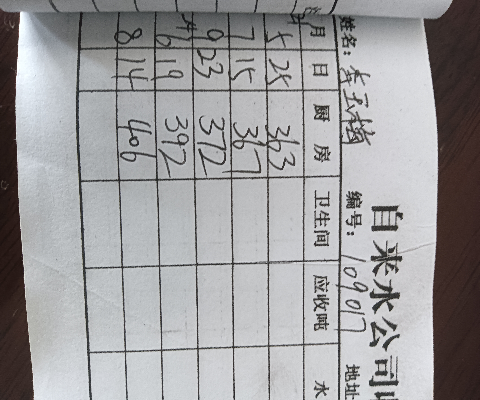 自来水公司
姓名：李玉梅 编号：109017 地址
月 日 厨房 卫生间 应收吨 水
5 25 363
7 15 367
9 23 372
6 19 392
8 14 406